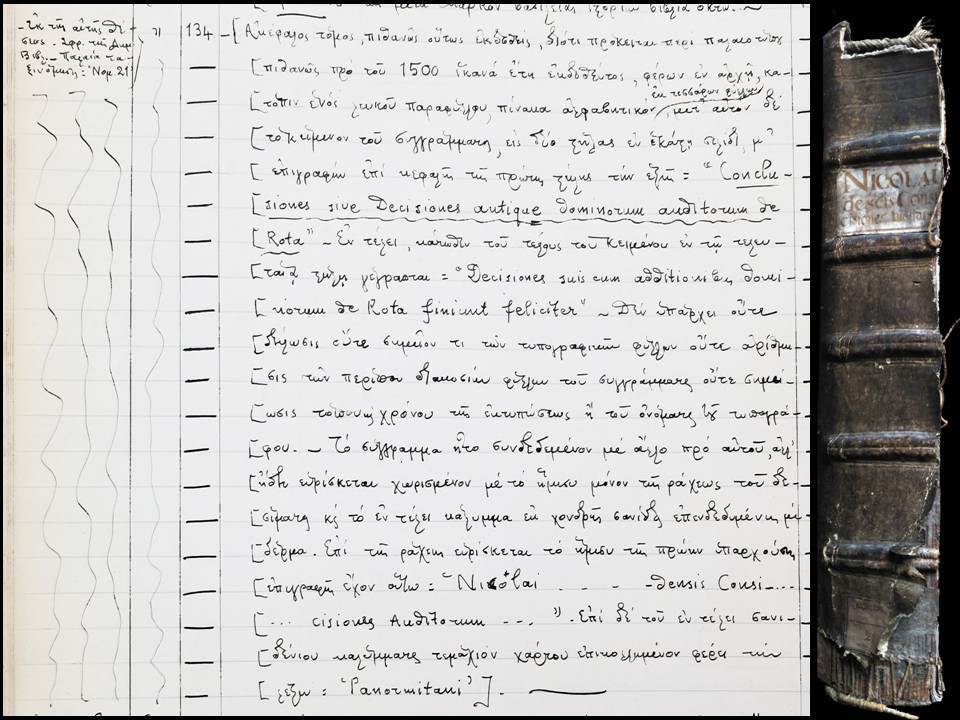 - Ἐκ τῆς αὐτῆς θέ
σεως. Σφρ. τῆς Δημ.
Βιβλ. - Παλαιὰ τα-
ξινόμησις: Νομ. 21
134 - [Ἀκέφαλος τόμος, πιθανῶς οὕτως ἐκδοθείς, διότι πρόκειται περὶ παλαιοτύπου
[πιθανῶς πρὸ τοῦ 1500 ἱκανὰ ἔτη ἐκδοθέντος, φέρων ἐν ἀρχῇ, κα-
ἐκ τεσσάρων φύλλων
[τόπιν ἑνὸς λευκοῦ παραφύλλου, πίνακα ἀλφαβητικὸν, μετ' αὐτὸν δὲ
[τὸ κείμενον τοῦ συγγράμματος, εἰς δύο στήλας ἐν ἑκάστῃ σελίδι, μ'
[ἐπιγραφὴν ἐπὶ κεφαλῆς τῆς πρώτης στήλης τὴν ἑξῆς = "Conclu-
[siones sive Decisiones antique dominorum auditorum de
[Rota" - Ἐν τέλει, κάτωθεν τοῦ τέλους τοῦ κειμένου ἐν τῇ τελευ-
[ταίᾳ στήλῃ γέγραπται = "Decisiones suis cum additionibus domi-
[norum de Rota finiunt feliciter" - Δὲν ὑπάρχει οὔτε
[δήλωσις οὔτε σημεῖον τι τῶν τυπογραφικῶν φύλλων οὔτε ἀρίθμη-
[σις τῶν περίπου διακοσίων φύλλων τοῦ συγγράμματος οὔτε σημεί-
[ωσις τόπου ἢ χρόνου τῆς ἐκτυπώσεως ἢ τοῦ ὀνόματος τοῦ τυπογρά-
[φου. - Τὸ σύγγραμμα ἦτο συνδεδεμένον μὲ ἄλλο πρὸ αὐτοῦ, ἀλλ'
[ἤδη εὑρίσκεται χωρισμένον μὲ τὸ ἥμισυ μόνον τῆς ράχεως τοῦ δε-
[σίματος κὲ τὸ ἐν τέλει κάλυμμα ἐκ χονδρῆς σανίδος ἐπενδεδυμένης μὲ
[δέρμα. Ἐπὶ τῆς ράχεως εὑρίσκεται τὸ ἥμισυ τῆς πρώην ὑπαρχούσης
[ἐπιγραφῆς ἔχον οὕτω = "Nicolai . . - -densis Consi-...
[... cisiones Auditorum - - . ". Ἐπὶ δὲ τοῦ ἐν τέλει σανι-
[δένιου καλύμματος τεμάχιον χάρτου ἐπικολλημένον φέρει τὴν
[λέξιν = "Panormitani"]. -
NICOLAI